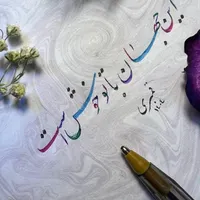 این جهان با تو خوش است